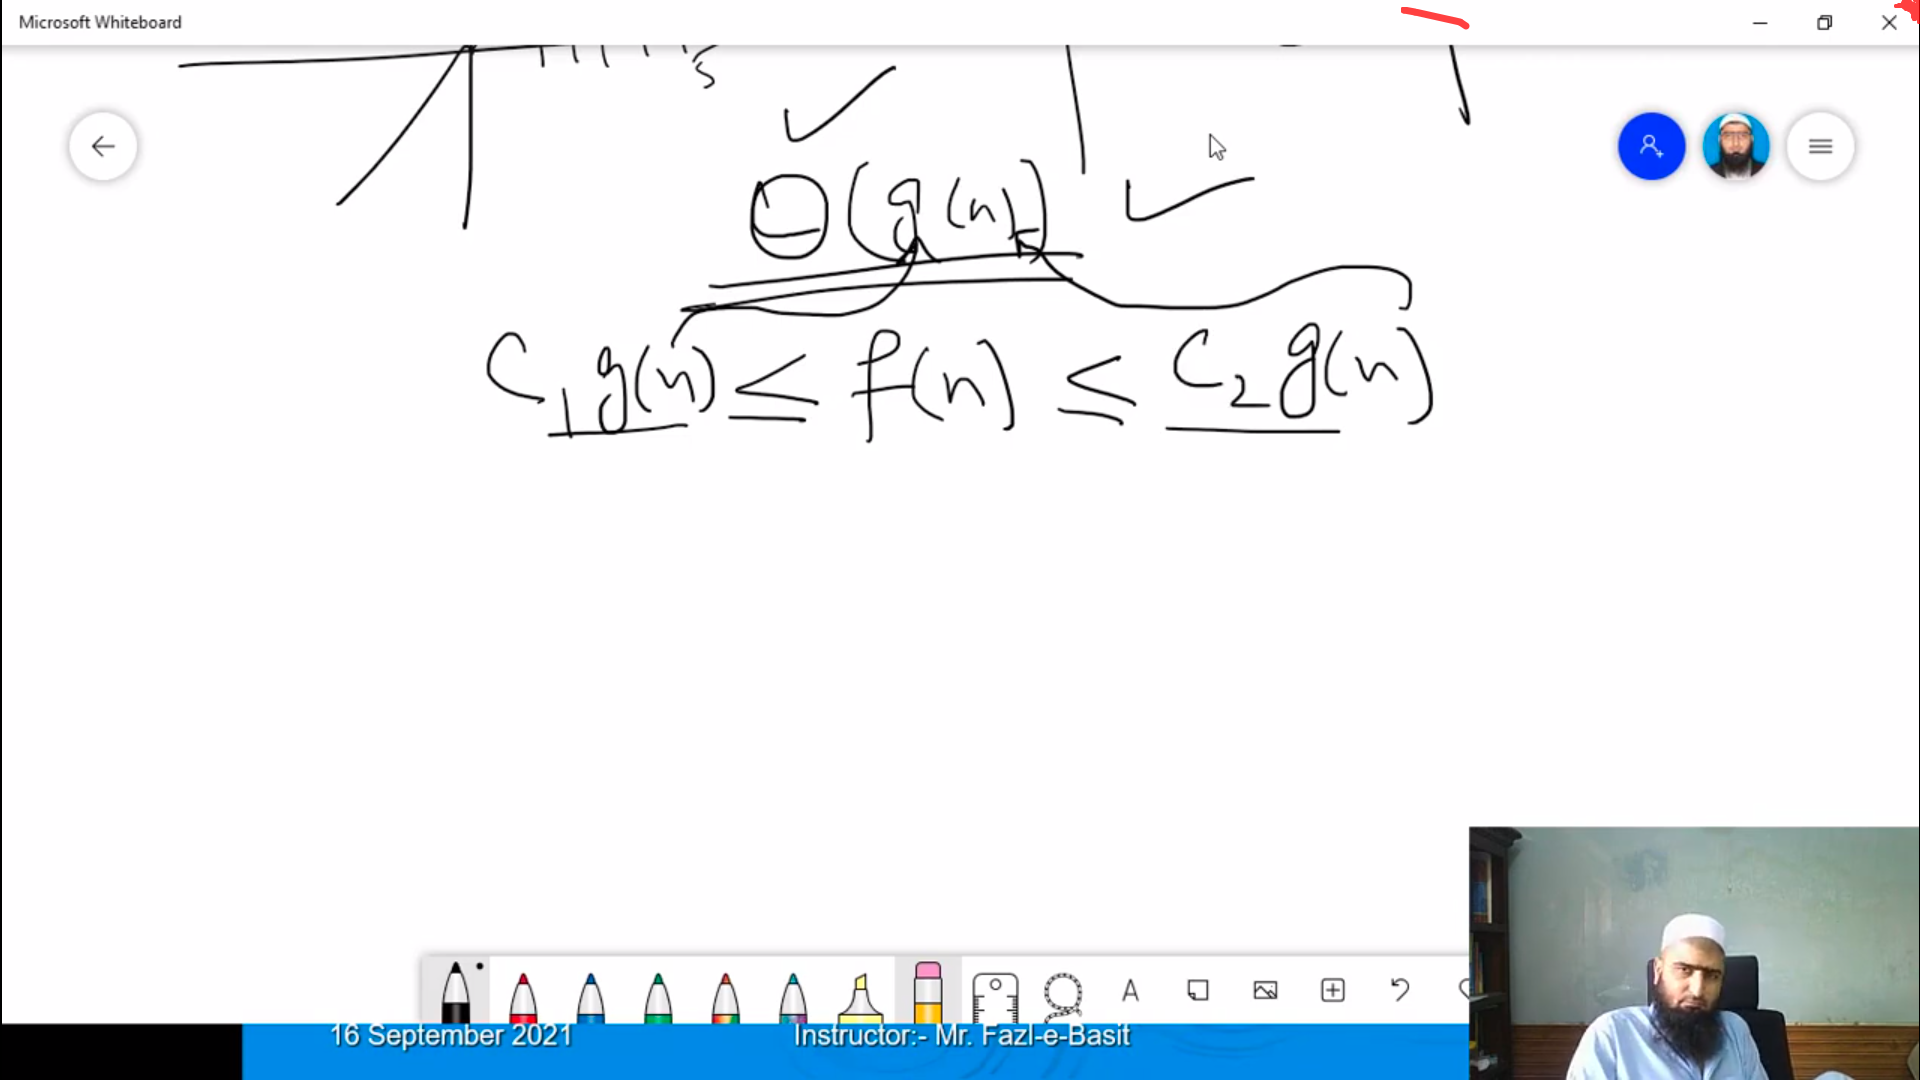 Microsoft Whiteboard
5
Θ(g(n))
C₁g(n) ≤ f(n) ≤ C₂g(n)
A
16 September 2021
Instructor:- Mr. Fazl-e-Basit